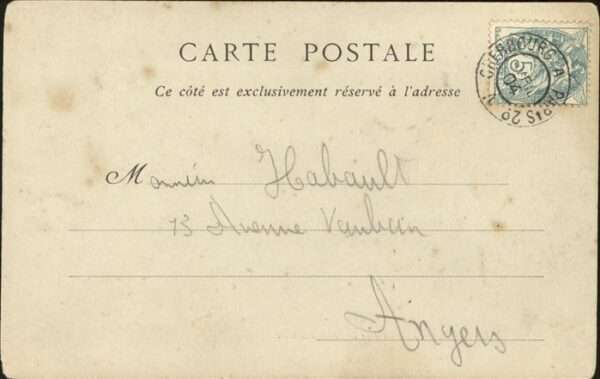 CARTE POSTALE
CHERBOURG A PARIS 2º
04
Ce côté est exclusivement réservé à l'adresse
Monsieur Habault
13 Avenue Vauban
Angers